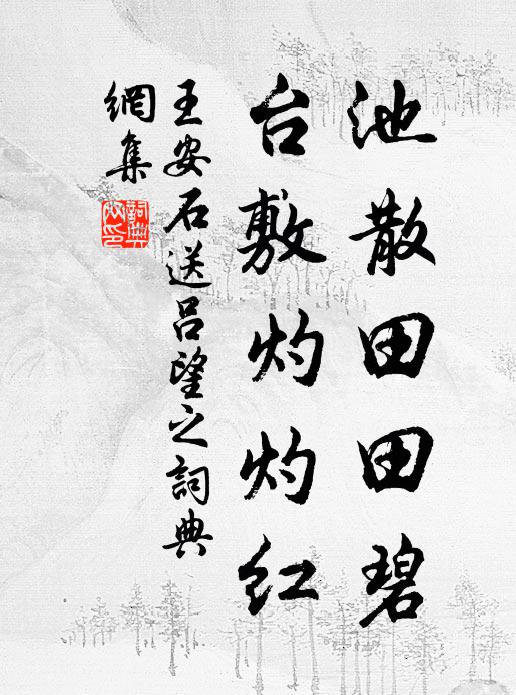 池散田田碧
台敷灼灼红
王安石送吕望之詞典
網集
詞典
网印